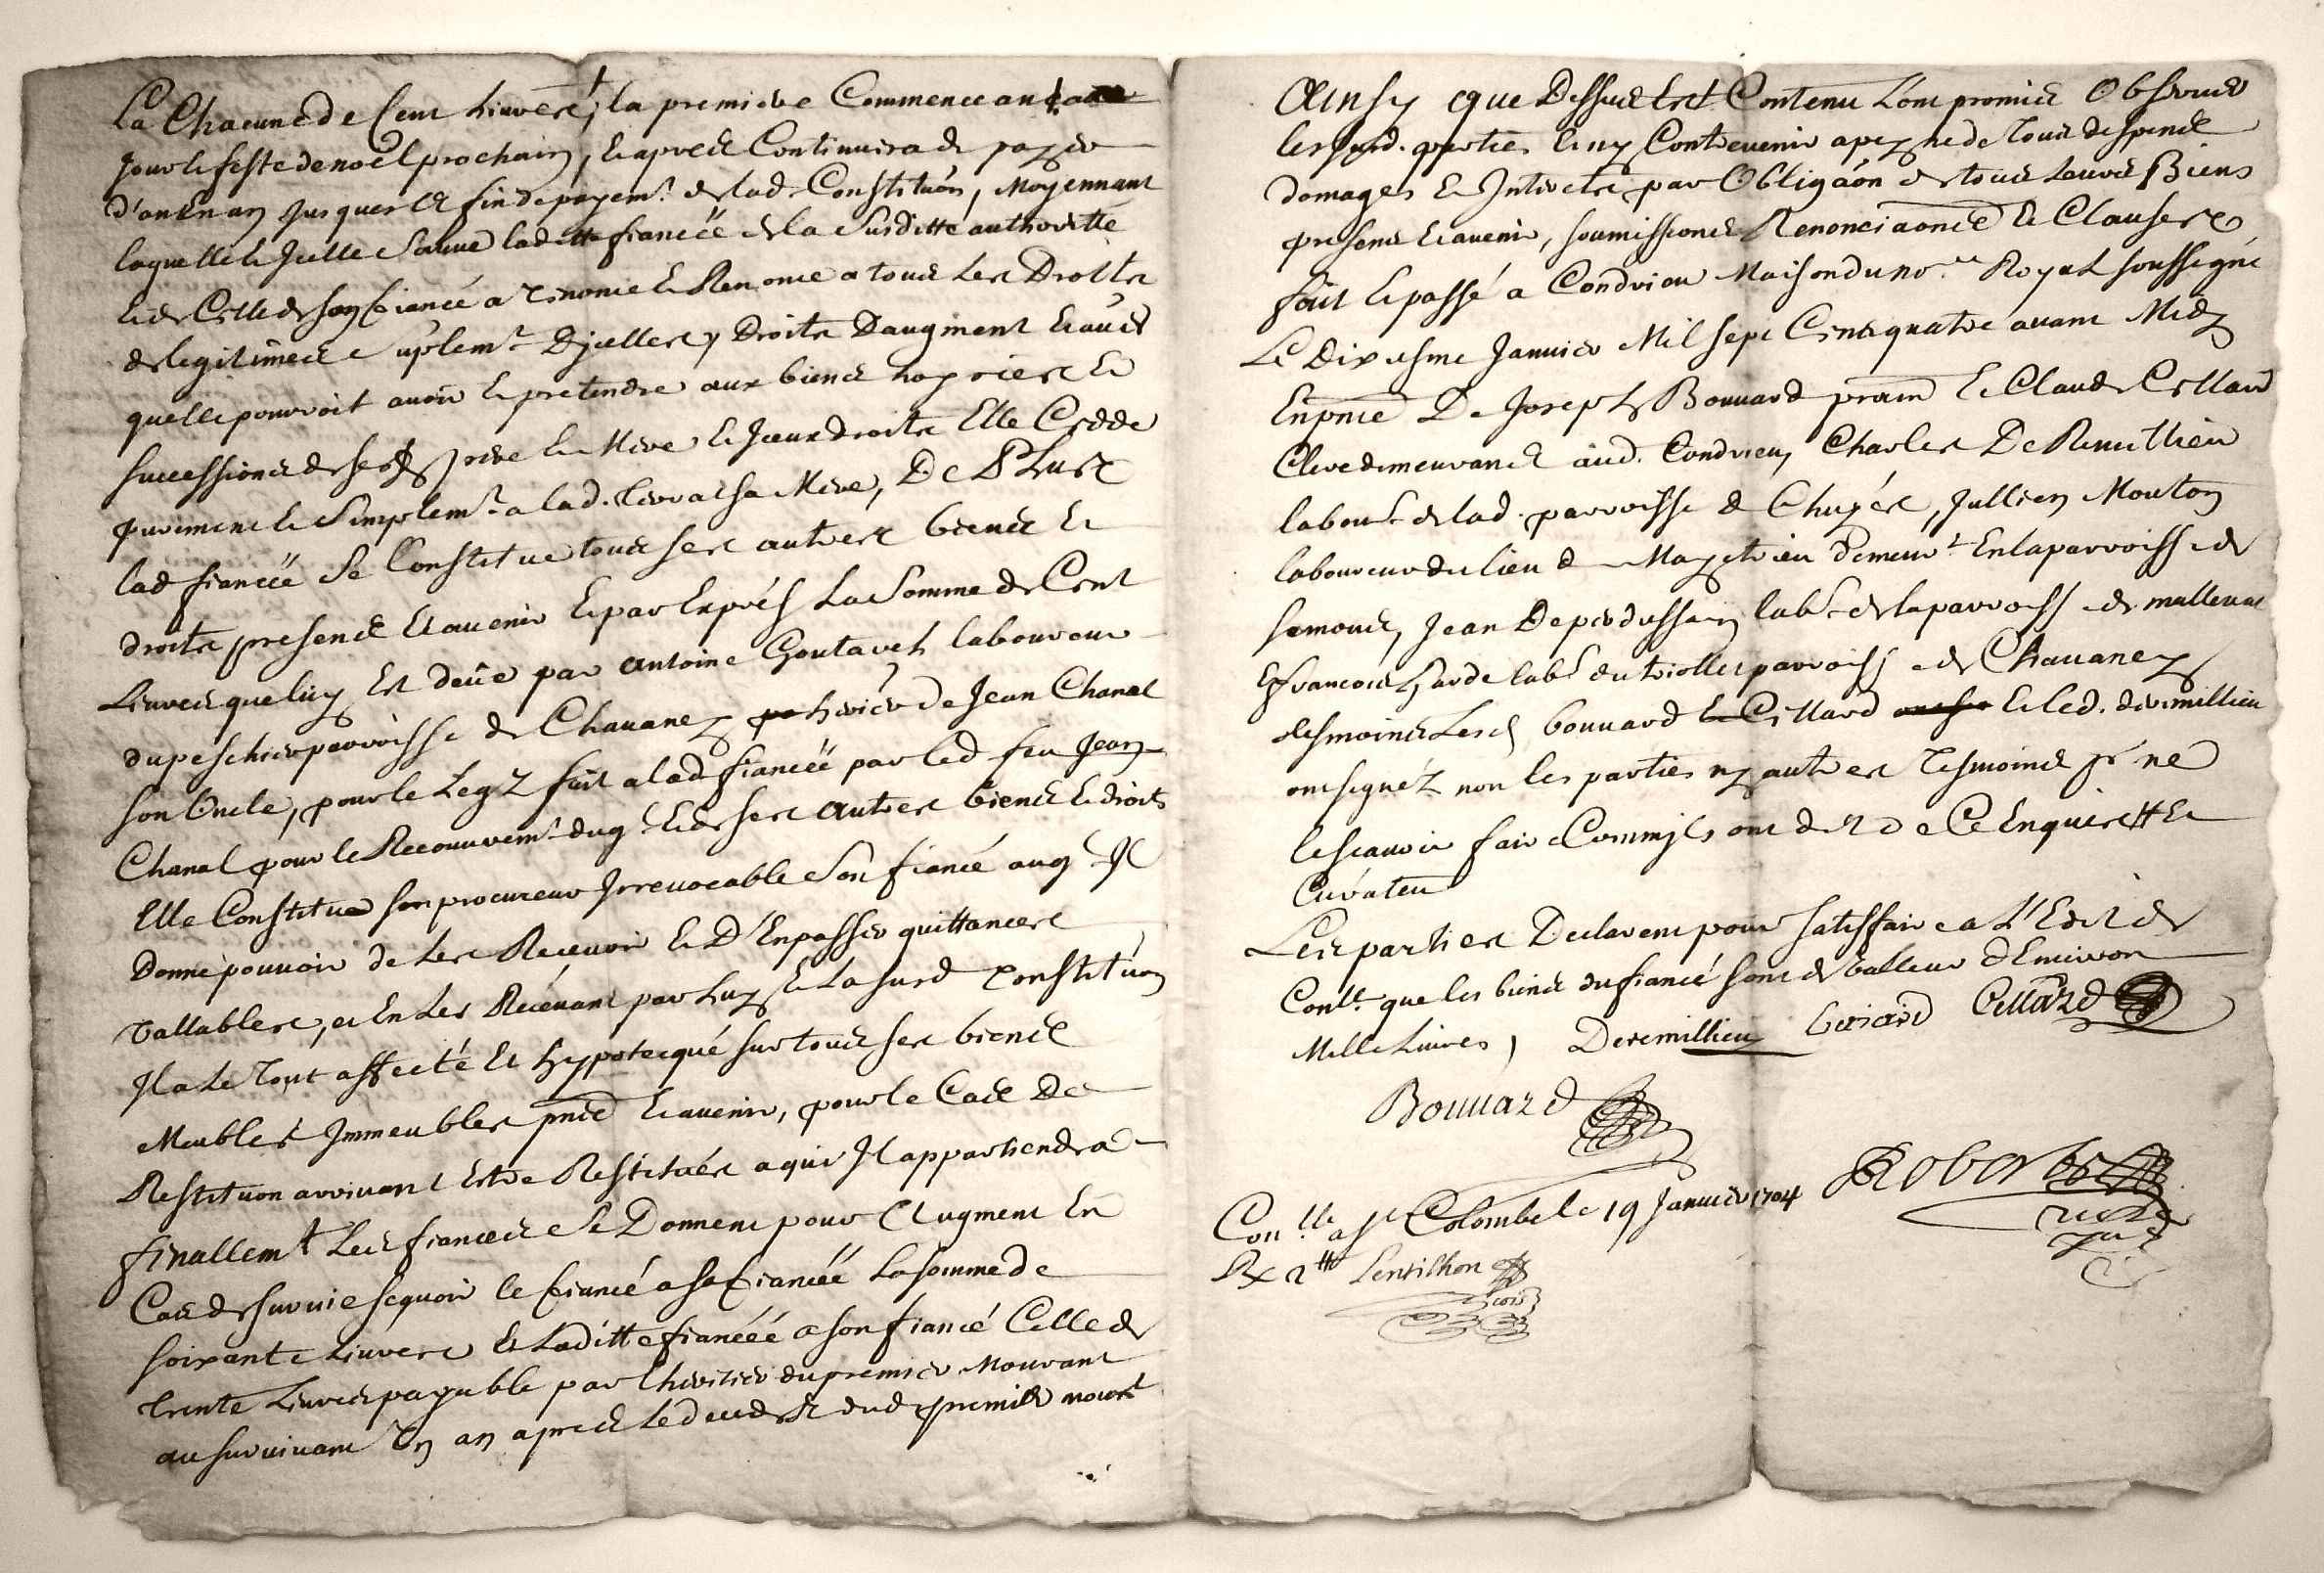 La Chacune de Cent Livres, la premiere Commenceant
Jour & feste de noel prochain, & apres Continuera de payer
d'an En an Jusques a fin de payem.t de lad. Constitûon, Moyennant
laquelle Icelle ladtte fiancéé de la Susditte authoritté
& de Celle de son fiancé a renoncé & Renonce a tous Les Droits
de legitimes e suplem.t D'jcelles, Droits Daugment & autres
quelle pourroit avoir & pretendre aux biens hoyries &
successions de ses pere & Mere & Iceux droits Elle Cedde
purement & Simplem.t a lad. sa Mere, De Plus
lad fiancéé Se Constitue tous ses autres biens &
droits presens & avenir & par Exprés La Somme de Cent
Livres que luy Est deüe par Antoine Goutarel laboureur
du peschier parroisse de Chavaney heritier de Jean Chanal
son Oncle, pour le Legz fait a lad fiancéé par led feu Jean
Chanal pour le Recouuvrem.t duq.l & de ses autres biens & droits
Elle Constitue son procureur Irrevocable Son fiancé auq.l Il
Donne pouvoir de Les Recevoir & D'En passer quittances
vallables, et En Les Récévant par Luy & La susd Constitûon
Il a Le Tout affecté & hypotecqué sur tous ses biens
Meubles Immeubles pnts & avenir, pour le Cas De
Restitûon arrivant Estre Restitués a qui Il appartiendra
finallem.t Les fiances Se Donnent pour Augment En
Cas de survie scavoir le fiancé a sa fiancéé La somme de
soixante Livres & Laditte fiancéé a son fiancé Celle de
trente Livres payable par l'heritier du premier Mourant
au survivant Un an apres Le deceds dud premier mour.t
Ainsy que Dessus Est Contenu L'ont promis Observer
les susd. parties & ny Contrevenir a peyne de tous despens
domages & Interets par Obligâon de tous Leurs Biens
presens & avenir, soumissions Renonciaons & Clauses
fait & passé a Condrieu Maison du no.re Royal soussigné
Le Dixiesme Janvier Mil sept Cens quatre avant Midy
En pnce De Joseph Bouvard & Claude Cellard
Clerc demeurans aud. Condrieu, Charles De Remillieu
labour.r de lad. parroisse de Chuyés, Jullien Mouton
laboureur du lieu de demeur.t En la parroisse de
semons, Jean Depierdussain lab.r de la parroisse de malleval
& francois Garde lab.r du triollet parroisse de Chavaney
tesmoins Lesd bouvard & Cellard & led. deremillieu
ont signéz non les parties ny autres Tesmoins pr ne
le scavoir faire Comm'jls ont dit de Ce Enquis & &
Curateur
Les parties Declarent pour satisfaire a L'Edit de
Cont.le que les biens du fiancé sont de valleur d'Environ
Mille Livres, Deremillieu Cellard
Bouvard
Robert
Con.lle a S.te Colombe le 19 Janvier 1704
Rx 2 tt Lentilhon